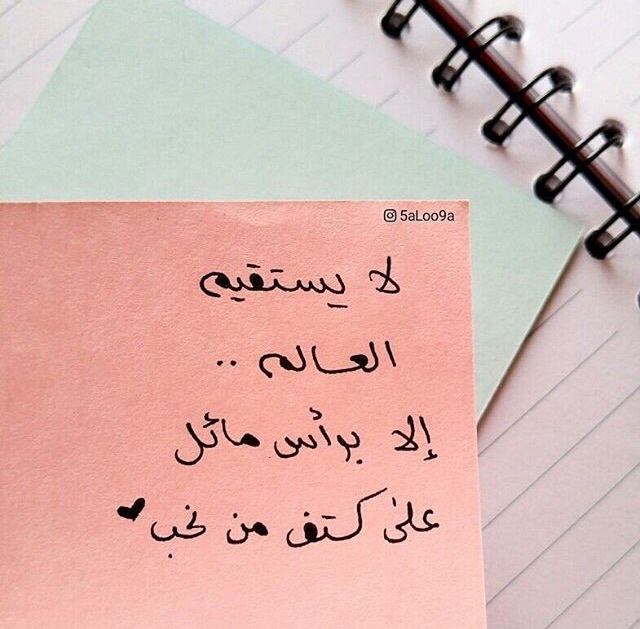 5aLoo9a
لا يستقيم
العالم ..
إلا برأس مائل
على كتف من نحب